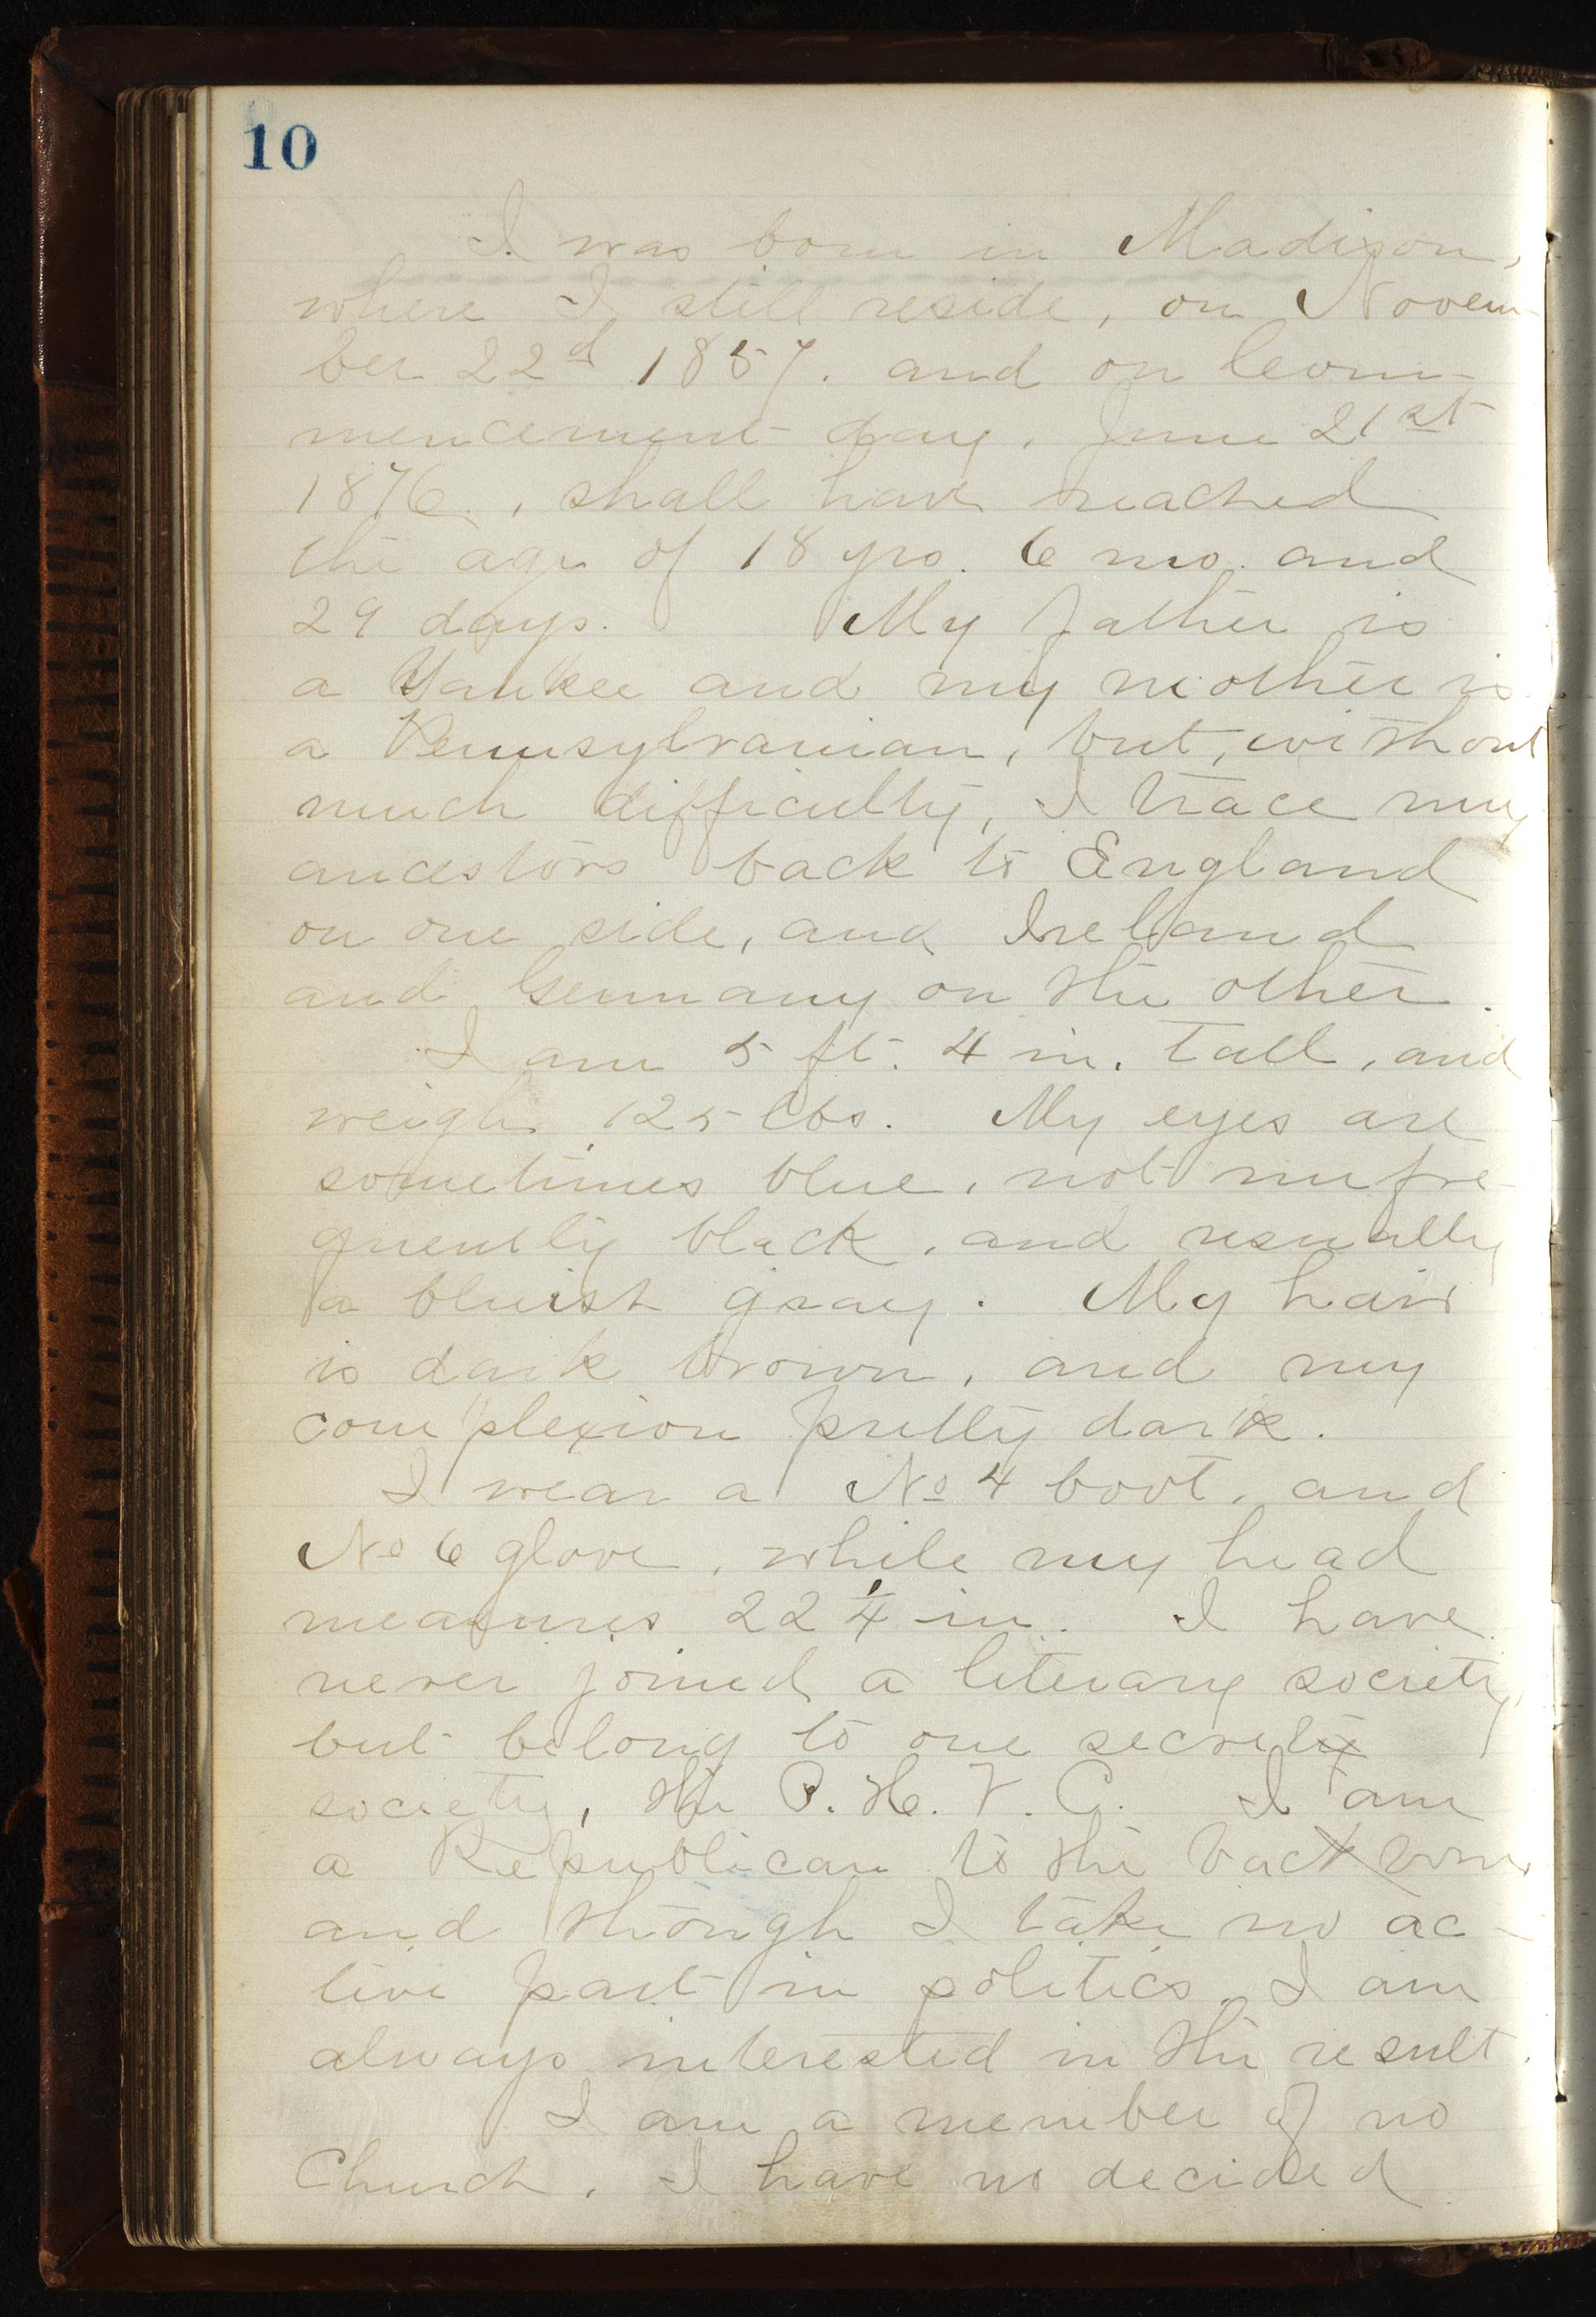 10
I was born in Madison,
where I still reside, on Novem-
ber 22d 1857. and on Com-
mencement day, June 21st
1876., shall have reached
the age of 18 yrs. 6 mo. and
29 days. My father is
a Yankee and my mother is
a Pennsylvanian, but, without
much difficulty, I trace my
ancestors back to England
on one side, and Ireland
and Germany on the other.
I am 5 ft. 4 in. tall, and
weigh 125 lbs. My eyes are
sometimes blue, not unfre-
quently black, and usually
a bluish gray. My hair
is dark brown, and my
complexion pretty dark.
I wear a No 4 boot, and
No 6 glove, while my head
measures 22 1/4 in. I have
never joined a literary society,
but belong to one secret
society, the P. H. V. C. I am
a Republican to the back bone
and though I take no ac-
tive part in politics, I am
always interested in the result.
I am a member of no
Church. I have no decided